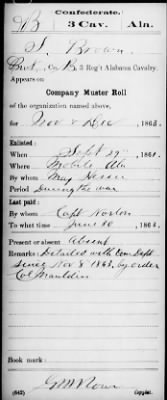 Confederate.
B 3 Cav. Ala.
J. Brown
Pvt, Co. B, 3 Reg't Alabama Cavalry.
Appears on
Company Muster Roll
of the organization named above,
for Nov & Dec, 1863.
Enlisted:
When Sept 29, 186
Where Mobile Ala
By whom Maj
Period During the war
Last paid:
By whom Capt Norton
To what time June 30, 186
Present or absent Absent
Remarks: Detailed with Com. Dept
Since Nov 8" 1863, by order
Col Mauldin
Book mark:
(642) Copyist.